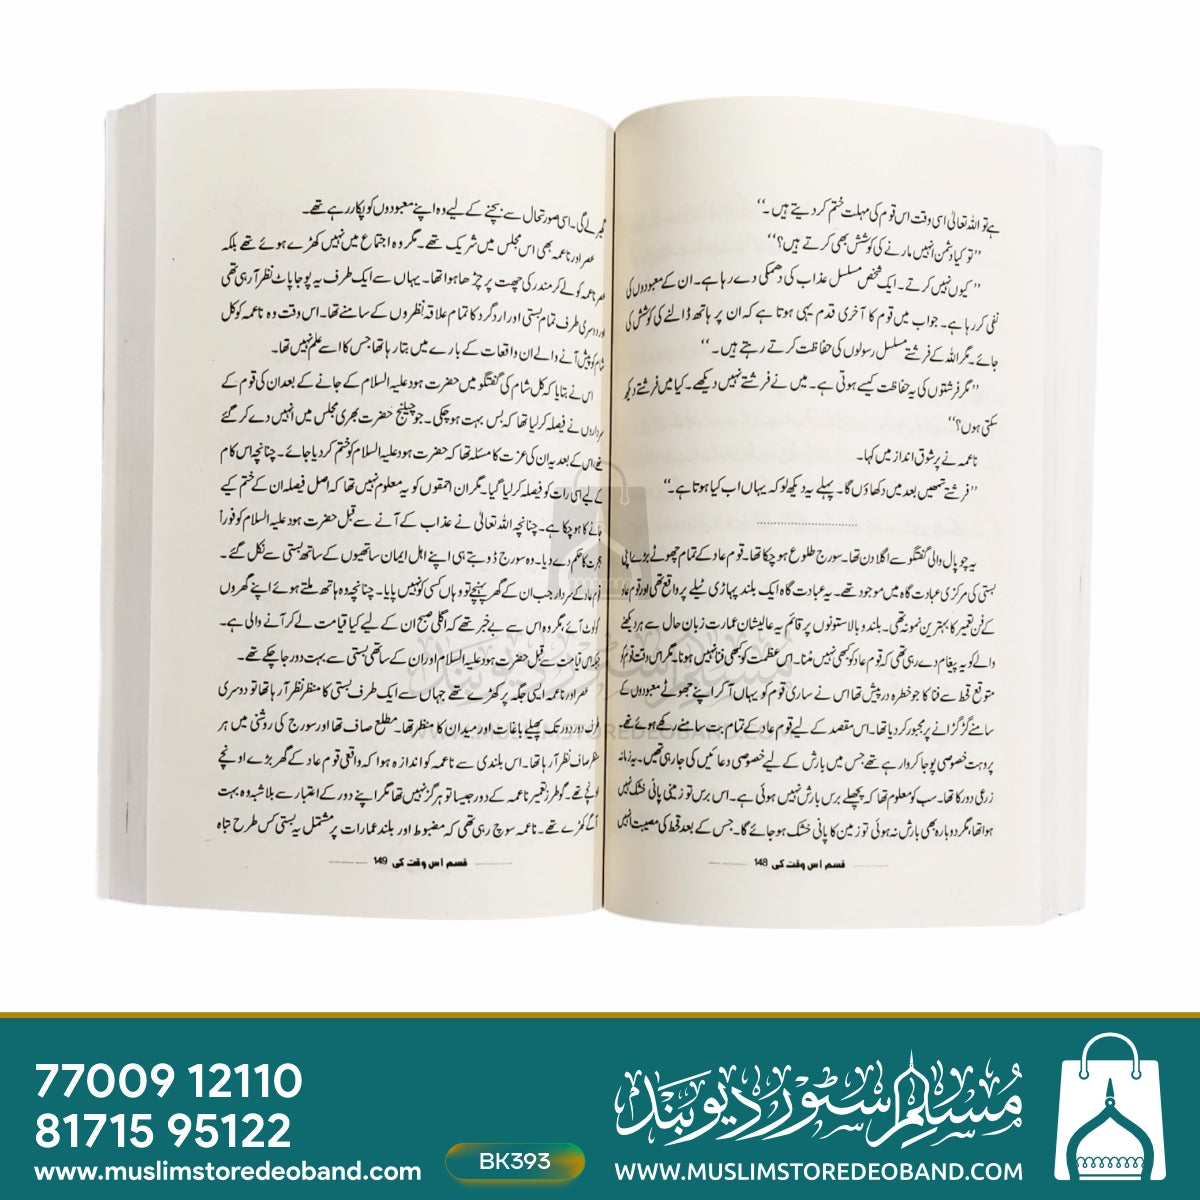 ہے تو اللہ تعالیٰ اسی وقت اس قوم کی مہلت ختم کر دیتے ہیں۔‘‘
’’تو کیا دشمن انہیں مارنے کی کوشش بھی کرتے ہیں؟‘‘
’’کیوں نہیں کرتے۔ ایک شخص مسلسل عذاب کی دھمکی دے رہا ہے۔ ان کے معبودوں کی
نفی کر رہا ہے۔ جواب میں قوم کا آخری قدم یہی ہوتا ہے کہ ان پر ہاتھ ڈالنے کی کوشش کی
جائے۔ مگر اللہ کے فرشتے مسلسل رسولوں کی حفاظت کرتے رہتے ہیں۔‘‘
’’مگر فرشتوں کی یہ حفاظت کیسے ہوتی ہے۔ میں نے فرشتے نہیں دیکھے۔ کیا میں فرشتے دیکھ
سکتی ہوں؟‘‘
ناعمہ نے پرشوق انداز میں کہا۔
’’فرشتے تمھیں بعد میں دکھاؤں گا۔ پہلے یہ دیکھ لو کہ یہاں اب کیا ہوتا ہے۔‘‘
یہ چوپال والی گفتگو سے اگلا دن تھا۔ سورج طلوع ہو چکا تھا۔ قوم عاد کے تمام چھوٹے بڑے اپنی
بستی کی مرکزی عبادت گاہ میں موجود تھے۔ یہ عبادت گاہ ایک بلند پہاڑی ٹیلے پر واقع تھی اور قوم عاد
کے فن تعمیر کا بہترین نمونہ تھی۔ بلند و بالا ستونوں پر قائم یہ عالیشان عمارت زبان حال سے ہر دیکھنے
والے کو یہ پیغام دے رہی تھی کہ قوم عاد کو کبھی نہیں مٹنا۔ اس عظمت کو کبھی فنا نہیں ہونا۔ مگر اس وقت قوم کو
متوقع قحط سے فنا کا جو خطرہ درپیش تھا اس نے ساری قوم کو یہاں آکر اپنے جھوٹے معبودوں کے
سامنے گڑگڑانے پر مجبور کر دیا تھا۔ اس مقصد کے لیے قوم عاد کے تمام بت سامنے رکھے ہوئے تھے
پروہت خصوصی پوجا کروا رہے تھے جس میں بارش کے لیے خصوصی دعائیں کی جا رہی تھیں۔ یہ زمانہ
زرعی دور کا تھا۔ سب کو معلوم تھا کہ پچھلے برس بارش نہیں ہوئی ہے۔ اس برس تو زمینی پانی خشک نہیں
ہوا تھا، مگر دوبارہ بھی بارش نہ ہوئی تو زمین کا پانی خشک ہو جائے گا۔ جس کے بعد قحط کی مصیبت انہیں
قسم اس وقت کی 148
گھیر لے گی۔ اسی صورتحال سے بچنے کے لیے وہ اپنے معبودوں کو پکار رہے تھے۔
عصر اور ناعمہ بھی اس مجلس میں شریک تھے۔ مگر وہ اجتماع میں نہیں کھڑے ہوئے تھے بلکہ
عصر ناعمہ کو لے کر مندر کی چھت پر چڑھا ہوا تھا۔ یہاں سے ایک طرف یہ پوجا پاٹ نظر آ رہی تھی
اور دوسری طرف تمام بستی اور اردگرد کا تمام علاقہ نظروں کے سامنے تھا۔ اس وقت وہ ناعمہ کو کل
شام کو پیش آنے والے ان واقعات کے بارے میں بتا رہا تھا جس کا اسے علم نہیں تھا۔
اس نے بتایا کہ کل شام کی گفتگو میں حضرت ہود علیہ السلام کے جانے کے بعد ان کی قوم کے
سرداروں نے فیصلہ کر لیا تھا کہ بس بہت ہو چکی۔ جو چیلنج حضرت بھری مجلس میں انہیں دے کر گئے
تھے اس کے بعد یہ ان کی عزت کا مسئلہ تھا کہ حضرت ہود علیہ السلام کو ختم کر دیا جائے۔ چنانچہ اس کام
کے لیے اسی رات کو فیصلہ کر لیا گیا۔ مگر ان احمقوں کو یہ معلوم نہیں تھا کہ اصل فیصلہ ان کے ختم کیے
جانے کا ہو چکا ہے۔ چنانچہ اللہ تعالیٰ نے عذاب کے آنے سے قبل حضرت ہود علیہ السلام کو فوراً
ہجرت کا حکم دے دیا۔ وہ سورج ڈوبتے ہی اپنے اہل ایمان ساتھیوں کے ساتھ بستی سے نکل گئے۔
قوم عاد کے سردار جب ان کے گھر پہنچے تو وہاں کسی کو نہیں پایا۔ چنانچہ وہ ہاتھ ملتے ہوئے اپنے گھروں
کو لوٹ آئے، مگر وہ اس سے بے خبر تھے کہ اگلی صبح ان کے لیے کیا قیامت لے کر آنے والی ہے۔
جبکہ اس قیامت سے قبل حضرت ہود علیہ السلام اور ان کے ساتھی بستی سے بہت دور جا چکے تھے۔
عصر اور ناعمہ ایسی جگہ پر کھڑے تھے جہاں سے ایک طرف بستی کا منظر نظر آ رہا تھا تو دوسری
طرف دور دور تک پھیلے باغات اور میدان کا منظر تھا۔ مطلع صاف تھا اور سورج کی روشنی میں ہر
منظر صاف نظر آ رہا تھا۔ اس بلندی سے ناعمہ کو اندازہ ہوا کہ واقعی قوم عاد کے گھر بڑے اونچے
اونچے تھے۔ گو طرز تعمیر ناعمہ کے دور جیسا تو ہرگز نہیں تھا مگر اپنے دور کے اعتبار سے بلاشبہ وہ بہت
آگے کھڑے تھے۔ ناعمہ سوچ رہی تھی کہ مضبوط اور بلند عمارات پر مشتمل یہ بستی کس طرح تباہ
قسم اس وقت کی 149
مسلم سٹور دیوبند
WWW.MUSLIMSTOREDEOBAND.COM
77009 12110
81715 95122
www.muslimstoredeoband.com
BK393
مسلم سٹور دیوبند
WWW.MUSLIMSTOREDEOBAND.COM